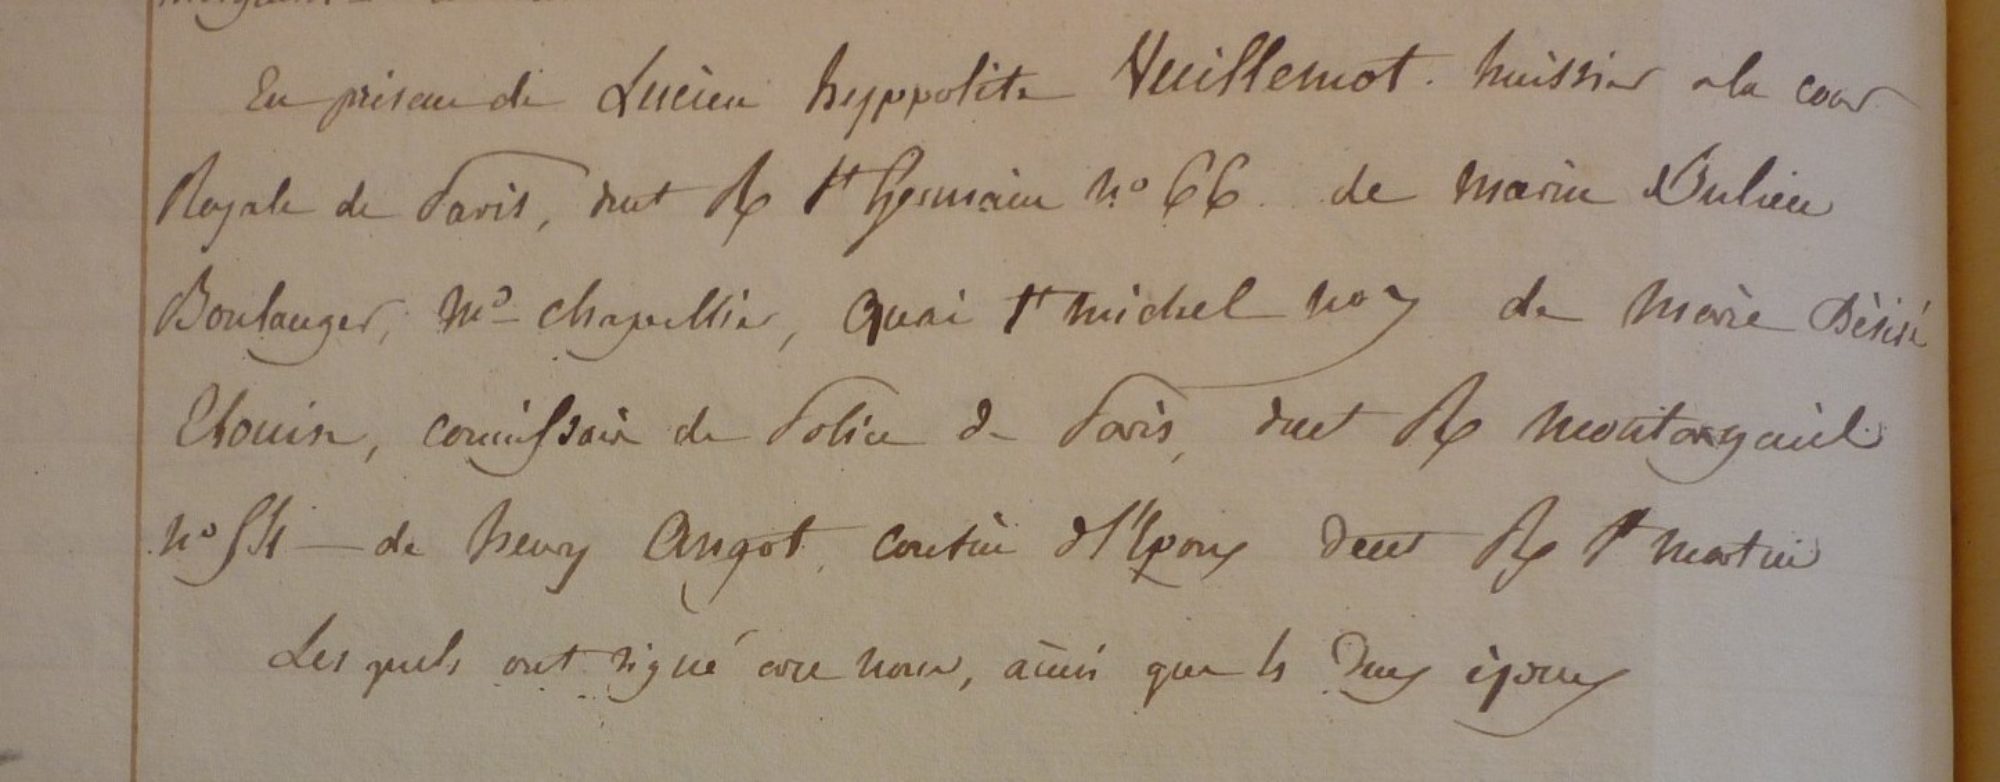 En présence de Lucien hyppolite Vuillemot. huissier a la cour
Royale de Paris, dnt R St Germain no 66. de Marin Julien
Boulanger, Md chapellier, Quai St Michel no 7 de Marie Désiré
Elouin, comissaire de Police de Paris, dnt R Montorgueil
no 54 — de henry Angot, cousin d l'Epoux dnt R St Martin
Les quels ont signé avec nous, ainsi que les deux époux